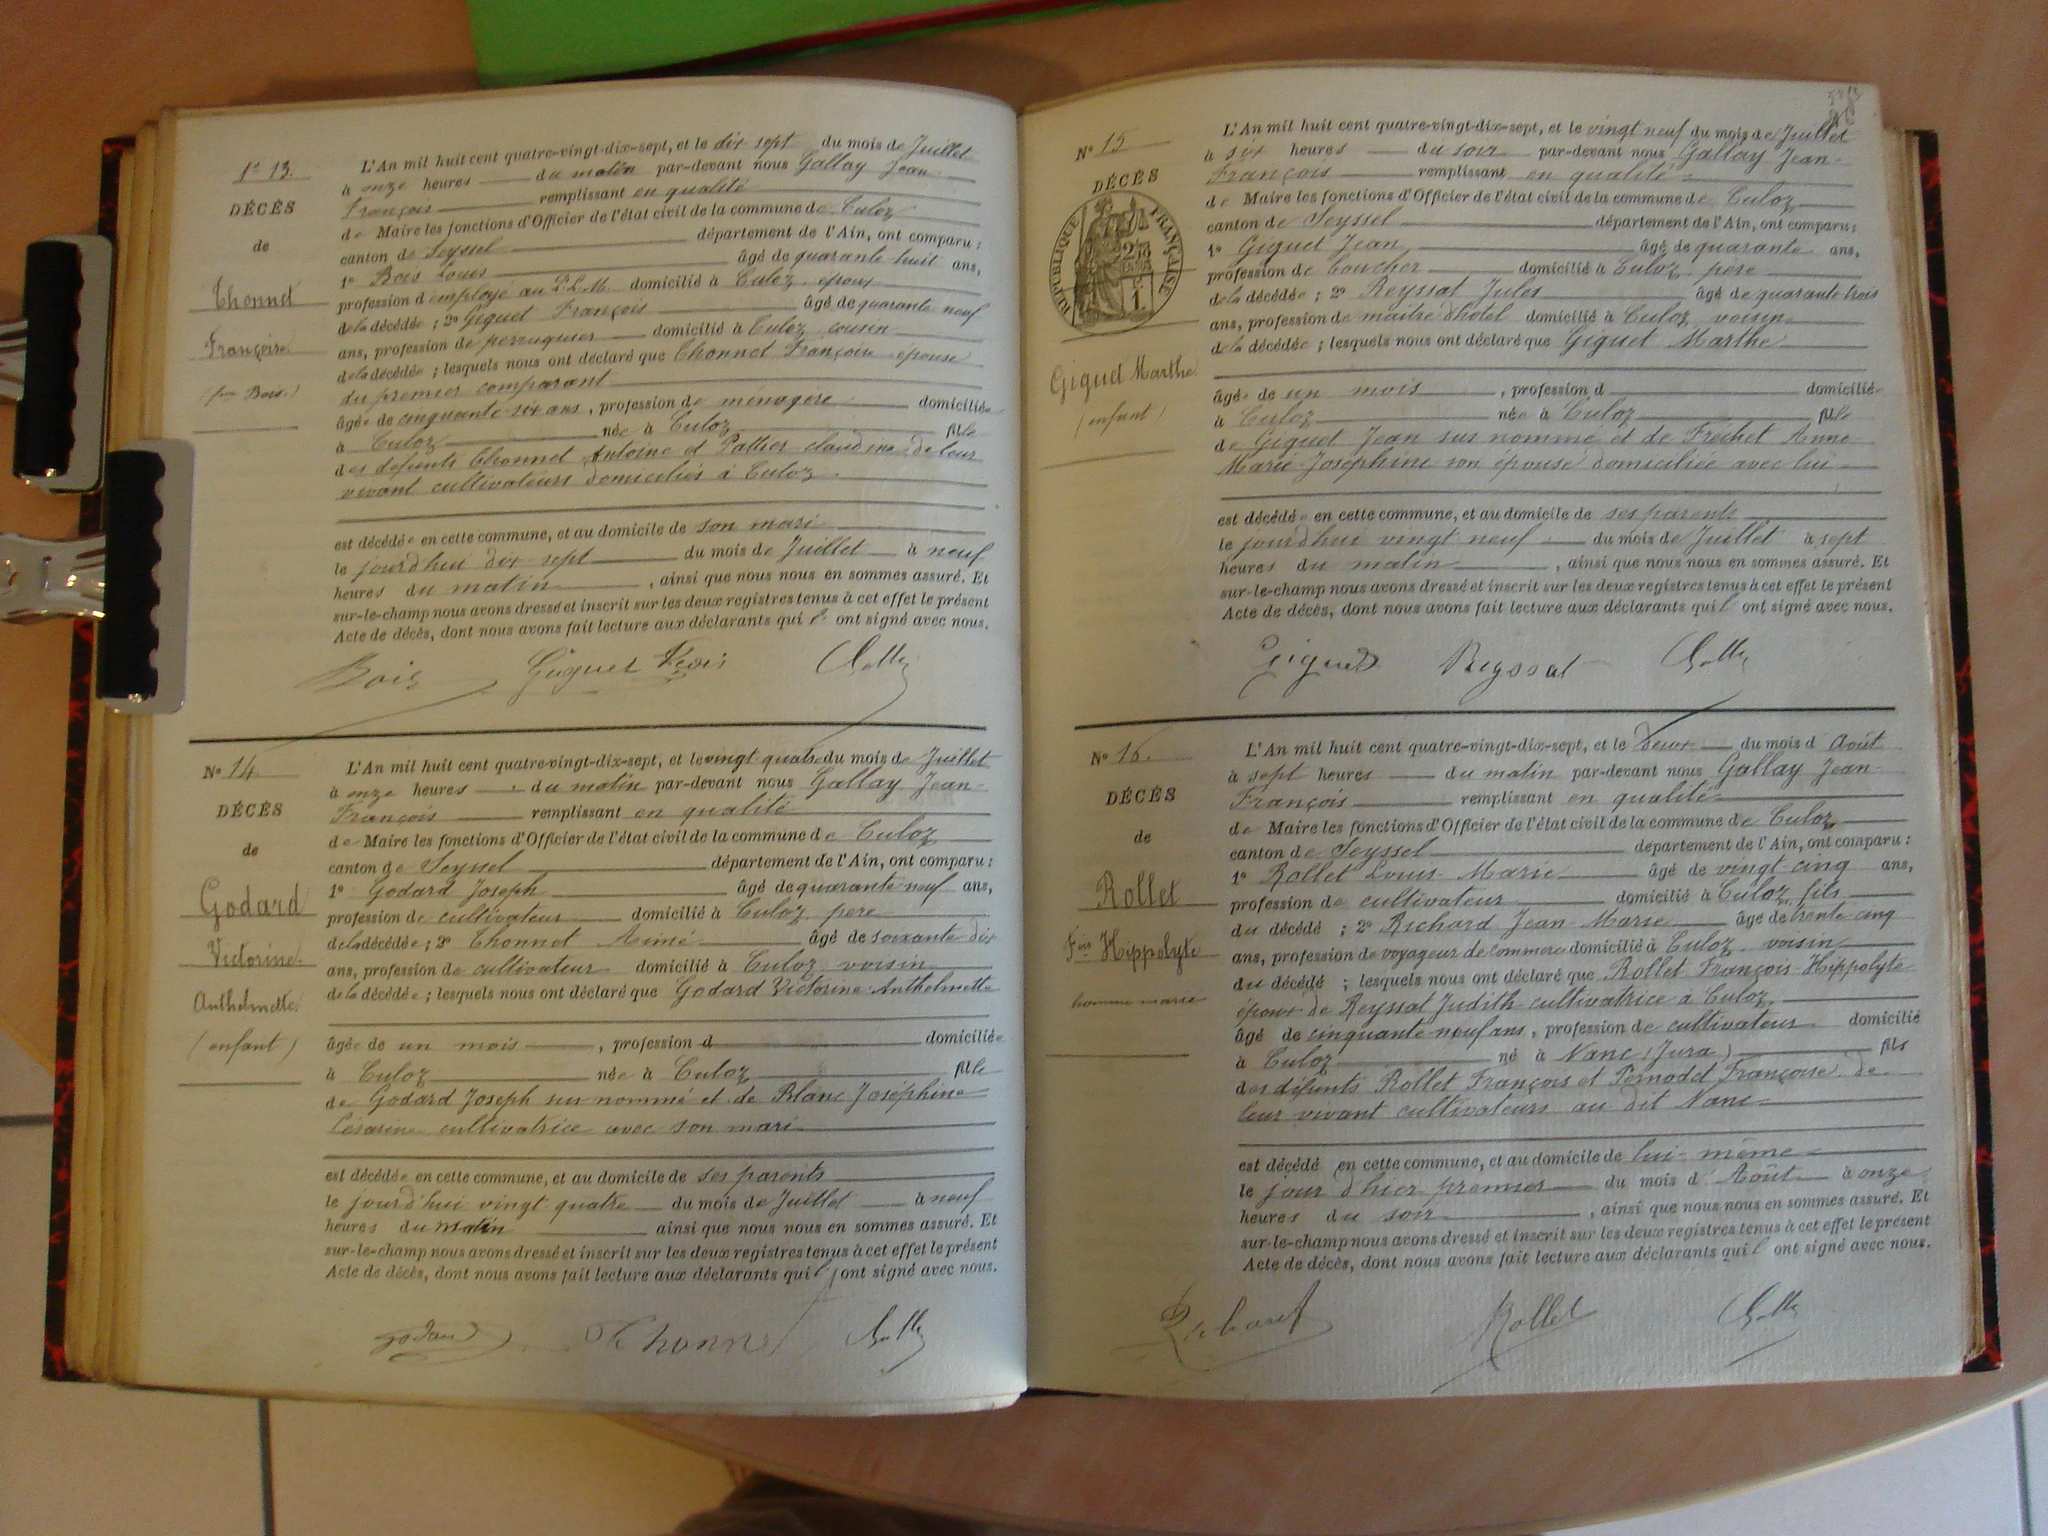 1e 13.
DÉCÈS
de
Thonnet
Françoise
(fme Bois.)
L'An mil huit cent quatre-vingt-dix-sept, et le dix sept du mois de Juillet
à onze heures du matin par-devant nous Gallay Jean-
François remplissant en qualité
de Maire les fonctions d'Officier de l'état civil de la commune de Culoz
canton de Seyssel département de l'Ain, ont comparu :
1° Bois Louis âgé de quarante huit ans,
profession d employé au P.L.M. domicilié à Culoz époux
de la décédée ; 2° Giguet François âgé de quarante neuf
ans, profession de perruquier domicilié à Culoz cousin
de la décédée ; lesquels nous ont déclaré que Thonnet Françoise épouse
du premier comparant
âgée de cinquante six ans, profession de ménagère domiciliée
à Culoz née à Culoz fille
des défunts Thonnet Antoine et Pallier claudine de leur
vivant cultivateurs domiciliés à Culoz.
est décédée en cette commune, et au domicile de son mari
le jourd'hui dix sept du mois de Juillet à neuf
heures du matin, ainsi que nous nous en sommes assuré. Et
sur-le-champ nous avons dressé et inscrit sur les deux registres tenus à cet effet le présent
Acte de décès, dont nous avons fait lecture aux déclarants qui ont signé avec nous.
Bois Giguet Fcois
N° 14
DÉCÈS
de
Godard
Victorine
Anthelmette
(enfant)
L'An mil huit cent quatre-vingt-dix-sept, et le vingt quatre du mois de Juillet
à onze heures du matin par-devant nous Gallay Jean-
François remplissant en qualité
de Maire les fonctions d'Officier de l'état civil de la commune de Culoz
canton de Seyssel département de l'Ain, ont comparu :
1° Godard Joseph âgé de quarante neuf ans,
profession de cultivateur domicilié à Culoz pere
de la décédée ; 2° Thonnet Aimé âgé de soixante dix
ans, profession de cultivateur domicilié à Culoz voisin
de la décédée ; lesquels nous ont déclaré que Godard Victorine Anthelmette
âgée de un mois, profession d domiciliée
à Culoz née à Culoz fille
de Godard Joseph sus nommé et de Blanc Joséphine
Césarine cultivatrice avec son mari
est décédée en cette commune, et au domicile de ses parents
le jourd'hui vingt quatre du mois de Juillet à neuf
heures du matin ainsi que nous nous en sommes assuré. Et
sur-le-champ nous avons dressé et inscrit sur les deux registres tenus à cet effet le présent
Acte de décès, dont nous avons fait lecture aux déclarants qui ont signé avec nous.
godard Thonnet
N° 15
DÉCÈS
RÉPUBLIQUE FRANÇAISE
Giguet Marthe
(enfant)
L'An mil huit cent quatre-vingt-dix-sept, et le vingt neuf du mois de Juillet
à six heures du soir par-devant nous Gallay Jean-
François remplissant en qualité
de Maire les fonctions d'Officier de l'état civil de la commune de Culoz
canton de Seyssel département de l'Ain, ont comparu :
1° Giguet Jean âgé de quarante ans,
profession de boucher domicilié à Culoz père
de la décédée ; 2° Reyssat Jules âgé de quarante trois
ans, profession de maitre d'hôtel domicilié à Culoz voisin
de la décédée ; lesquels nous ont déclaré que Giguet Marthe
âgée de un mois, profession d domiciliée
à Culoz née à Culoz fille
de Giguet Jean sus nommé et de Fréchet Anne
Marie Joséphine son épouse domiciliée avec lui
est décédée en cette commune, et au domicile de ses parents
le jourd'hui vingt neuf du mois de Juillet à sept
heures du matin, ainsi que nous nous en sommes assuré. Et
sur-le-champ nous avons dressé et inscrit sur les deux registres tenus à cet effet le présent
Acte de décès, dont nous avons fait lecture aux déclarants qui ont signé avec nous.
Giguet Reyssat
N° 16.
DÉCÈS
de
Rollet
Fois Hippolyte
homme marié
L'An mil huit cent quatre-vingt-dix-sept, et le deux du mois d Août
à sept heures du matin par-devant nous Gallay Jean-
François remplissant en qualité
de Maire les fonctions d'Officier de l'état civil de la commune de Culoz
canton de Seyssel département de l'Ain, ont comparu :
1° Rollet Louis Marie âgé de vingt cinq ans,
profession de cultivateur domicilié à Culoz fils
du décédé ; 2° Richard Jean Marie âgé de trente cinq
ans, profession de voyageur de commerce domicilié à Culoz voisin
du décédé ; lesquels nous ont déclaré que Rollet François-Hippolyte
époux de Reyssat Judith cultivatrice à Culoz
âgé de cinquante neuf ans, profession de cultivateur domicilié
à Culoz né à Nanc (Jura) fils
des défunts Rollet François et Pernodet Françoise de
leur vivant cultivateurs au dit Nanc
est décédé en cette commune, et au domicile de lui-même
le jour d'hier premier du mois d' Août à onze
heures du soir, ainsi que nous nous en sommes assuré. Et
sur-le-champ nous avons dressé et inscrit sur les deux registres tenus à cet effet le présent
Acte de décès, dont nous avons fait lecture aux déclarants qui ont signé avec nous.
Richard Rollet